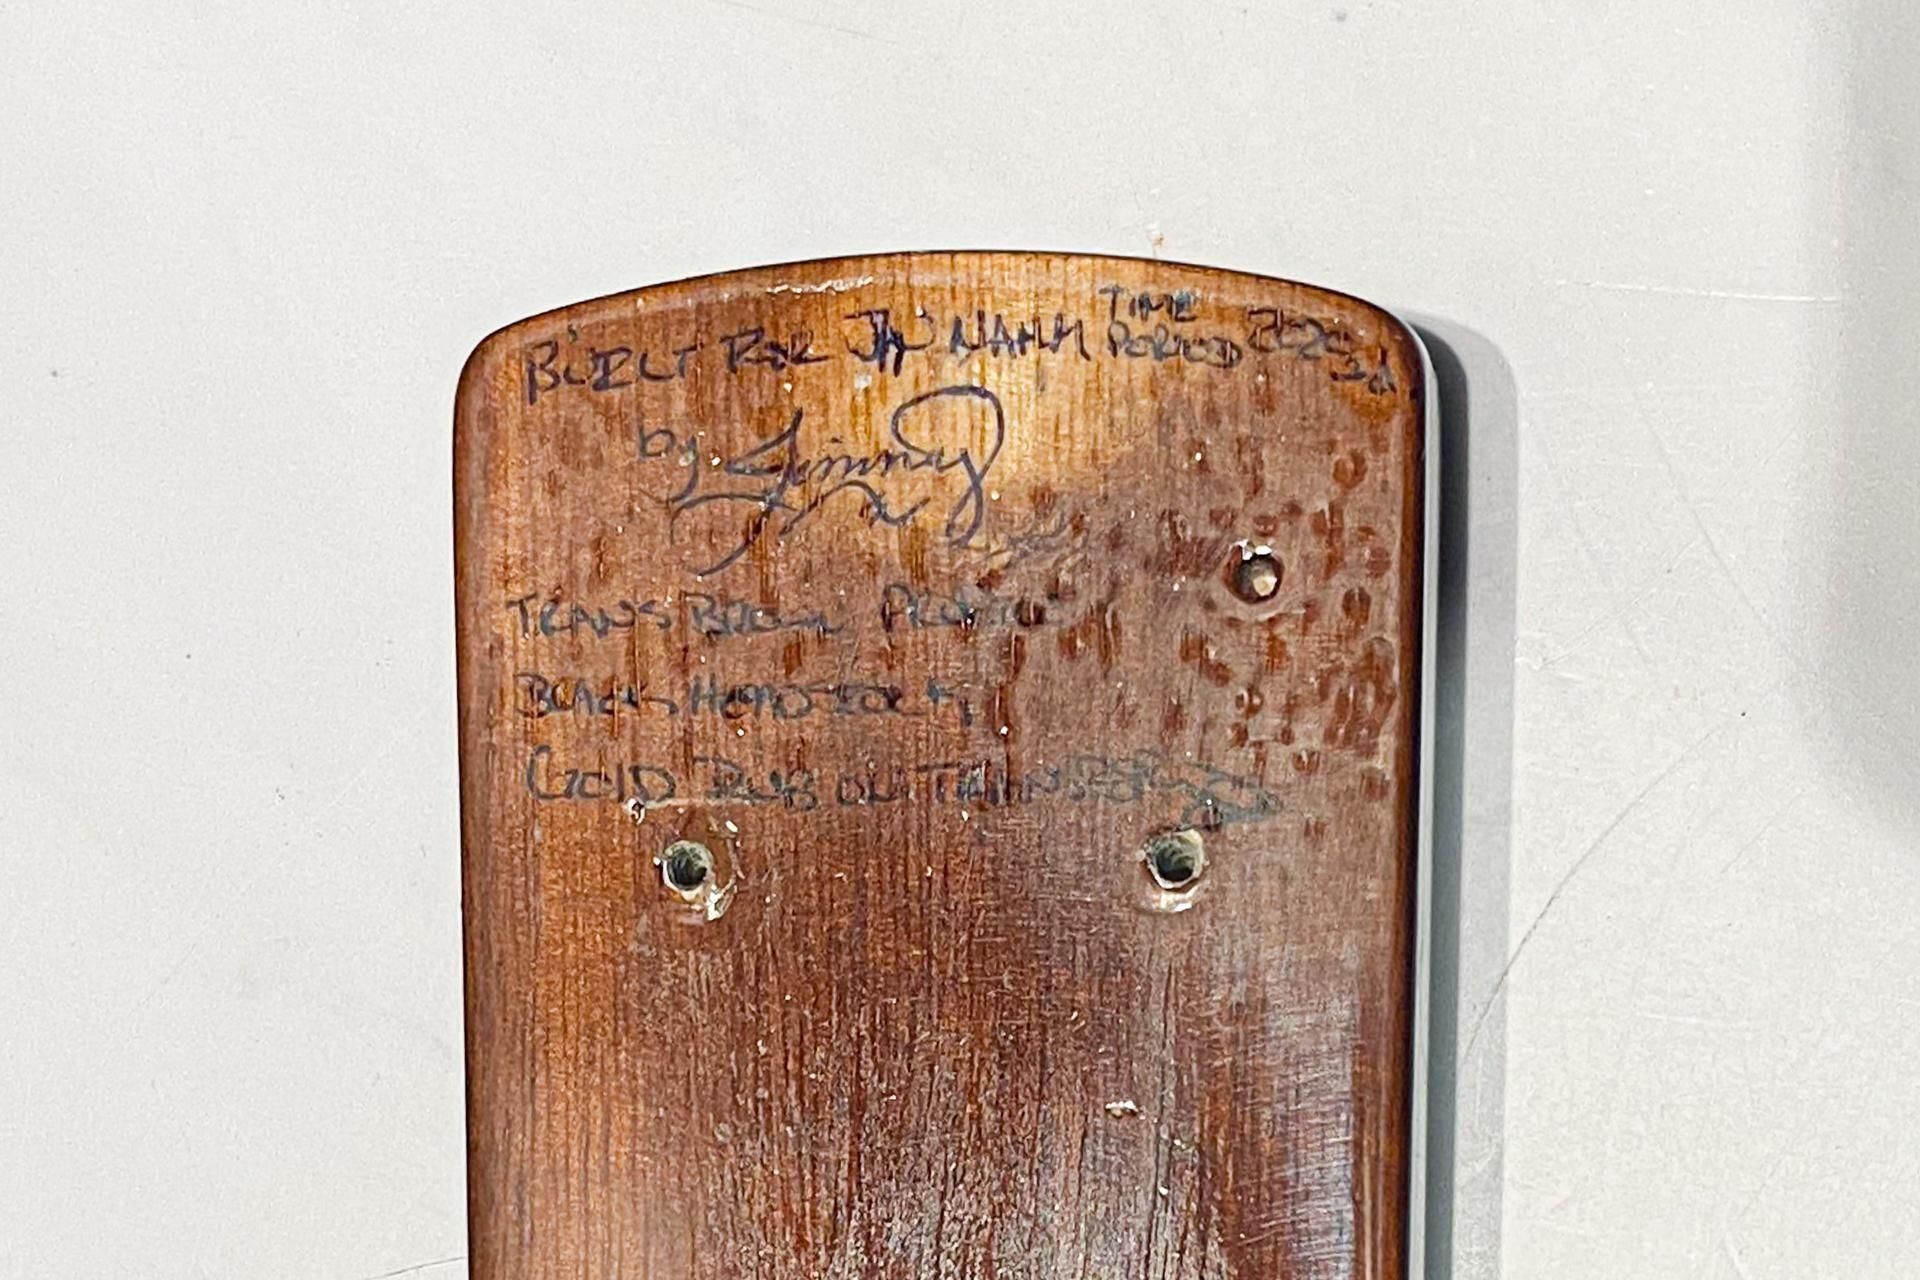 BUILT FOR JAN HAHN TIME PERIOD 2020
by Jimmy
TRANS BROWN
BLACK HEADSTOCK
GOLD RUB ON TRANSFER